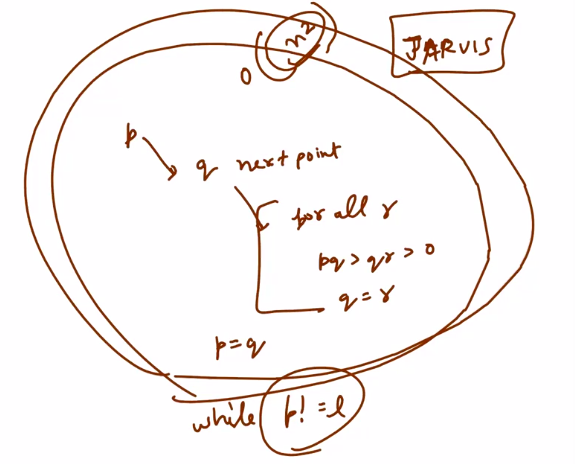 O(n²)
JARVIS
p
q next point
for all r
pq > qr > 0
q = r
p = q
while p! = l